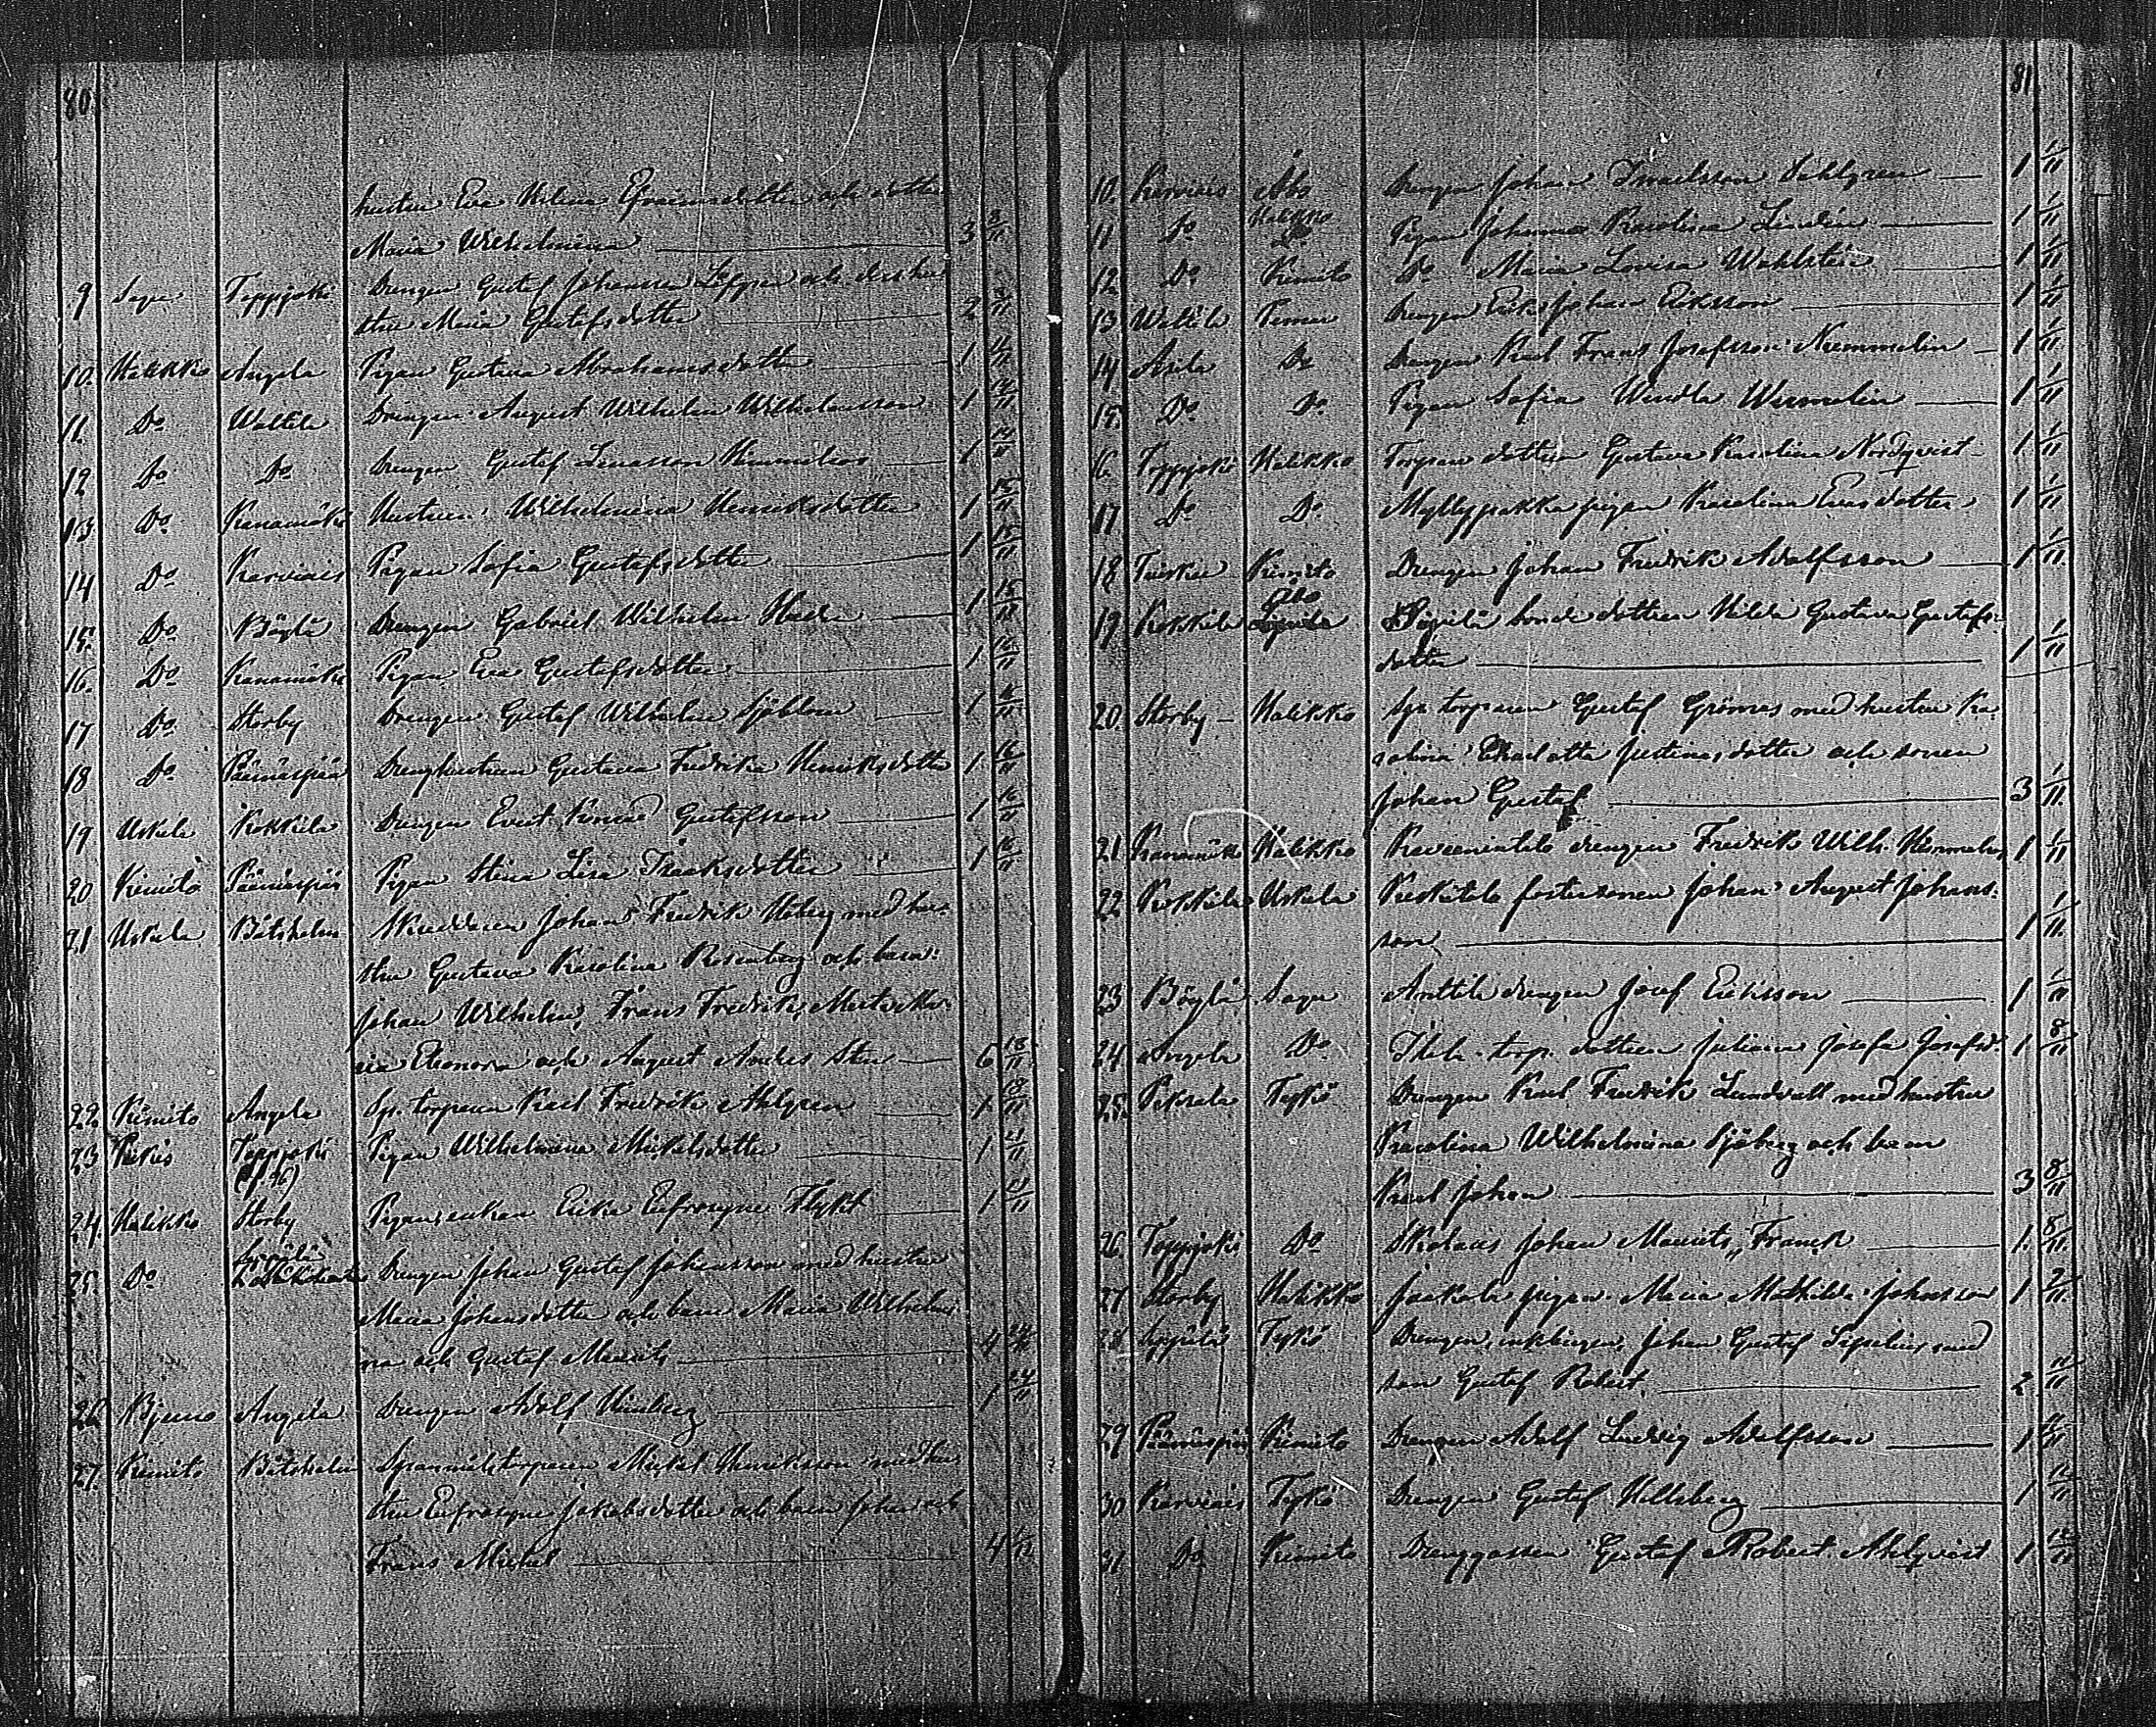 80
hustru Eva Helena Efraimsdotter och dotter
Maria Wilhelmina 3 8/11
9 Sagu Toppjoki Drengen Gustaf Johansson Löfgren och dess hu-
stru Maria Gustafsdotter 2 8/11
10. Halikko Angela Pigan Gustava Abrahamsdotter 1 11/11
11. Do Waltila Drengen August Wilhelm Wilhelmsson 1 14/11
12 Do Do Drengen Gustaf Himmelroos 1 14/11
13 Do Kanamäki Hustrun Wilhelmina Henriksdotter 1 15/11
14 Do Karviais Pigan Sofia Gustafsdotter 1 15/11
15. Do Böglä Drengen Gabriel Wilhelm 1 15/11
16. Do Kanamäki Pigan Eva Gustafsdotter 1 16/11
17 Do Storby Drengen Gustaf Wilhelm Sjöblom 1 16/11
18 Do Päärnäspää Drenghustrun Gustava Fredrika Henriksdotter 1 16/11
19 Uskela Kokkila Drengen Evert Konrad Gustafsson 1 16/11
20 Kimito Päärnäspää Pigan Stina Lisa Isaksdotter 1 16/11
21 Uskela Båtsholm Skreddaren Johan Fredrik med hu-
stru Gustava Karolina Rosenberg och barn:
Johan Wilhelm, Frans Fredrik, Ma-
ria Eleonora och August Anders 6 18/11
22. Kimito Angela Sp. torparen Karl Fredrik Ahlgren 1 18/11
23 Pikis Toppjoki Pigan Wilhelmina Mickelsdotter 1 21/11
24. Halikko Storby Pigan, enkan Erika Eufrosyne Flykt 1 21/11
25. Do Drengen Johan Gustaf Johansson med hustru
Maria Johansdotter och barn Maria Wilhelmi-
na och Gustaf Maurits 4 24/11
26 Bjerno Angela Drengen Adolf 1 24/11
27. Kimito Båtsholm Spanmålstorparen Mickel Henriksson med hu-
stru Eufrosyne Jakobsdotter och barn Johan och
Frans Mickel 4
81
10. Karviais Åbo Drengen Johan Israelsson Dahlgren 1 1/11
11 Do Halikko Pigan Johanna Karolina Lindén 1 1/11
12 Do Kimito Do Maria Lovisa Wahlstén 1 1/11
13 Waltila Pemar Drengen Erik Johan Eriksson 1 1/11
14 Do Drengen Karl Frans Josefsson Nummelin 1 1/11
15. Do Do Pigan Sofia Wendla Wermelin 1 1/11
16 Toppjoki Halikko Torpare dottren Gustava Karolina Nordqvist 1 1/11
17 Do Do Myllypakka pigan Karolina Evasdotter 1 1/11
18 Tuiskee Kimito Drengen Johan Fredrik Adolfsson 1 1/11
19 Kokkila Åbo dottren Hilda Gustava Gustafs-
dotter 1 1/11
20. Storby Halikko Sp. torparen Gustaf Grönroos med hustru Ka-
rolina Charlotta Justinasdotter och sonen
Johan Gustaf 3 1/11
21 Kanamäki Halikko drengen Fredrik Wilh. 1 1/11
22 Kokkila Uskela Keskitalo fostersonen Johan August Johans-
son 1 1/11
23 Böglä Sagu Anttila drengen Josef Eriksson 1 1/11
24 Angela Do torp. dottren Juliana Josefa Josefsd. 1 8/11
25. Peksala Tykö Drengen Karl Fredrik Lundvall med hustru
Karolina Wilhelmina Sjöberg och barn
Karl Johan 3 8/11
26 Toppjoki Do Johan Maurits Franck 1 8/11
27 Storby Halikko Jaakola pigan Maria Mathilda Johansson 1
28 Tykö Drengen, enklingen Johan Gustaf med
son Gustaf Robert 2 11/11
29 Päärnäspää Kimito Drengen Adolf Ludvig Adolfsson 1 11/11
30 Karviais Tykö Drengen Gustaf Hellsberg 1 12/11
31 Do Kimito Drenggossen Gustaf Robert Ahlqvist 1 12/11